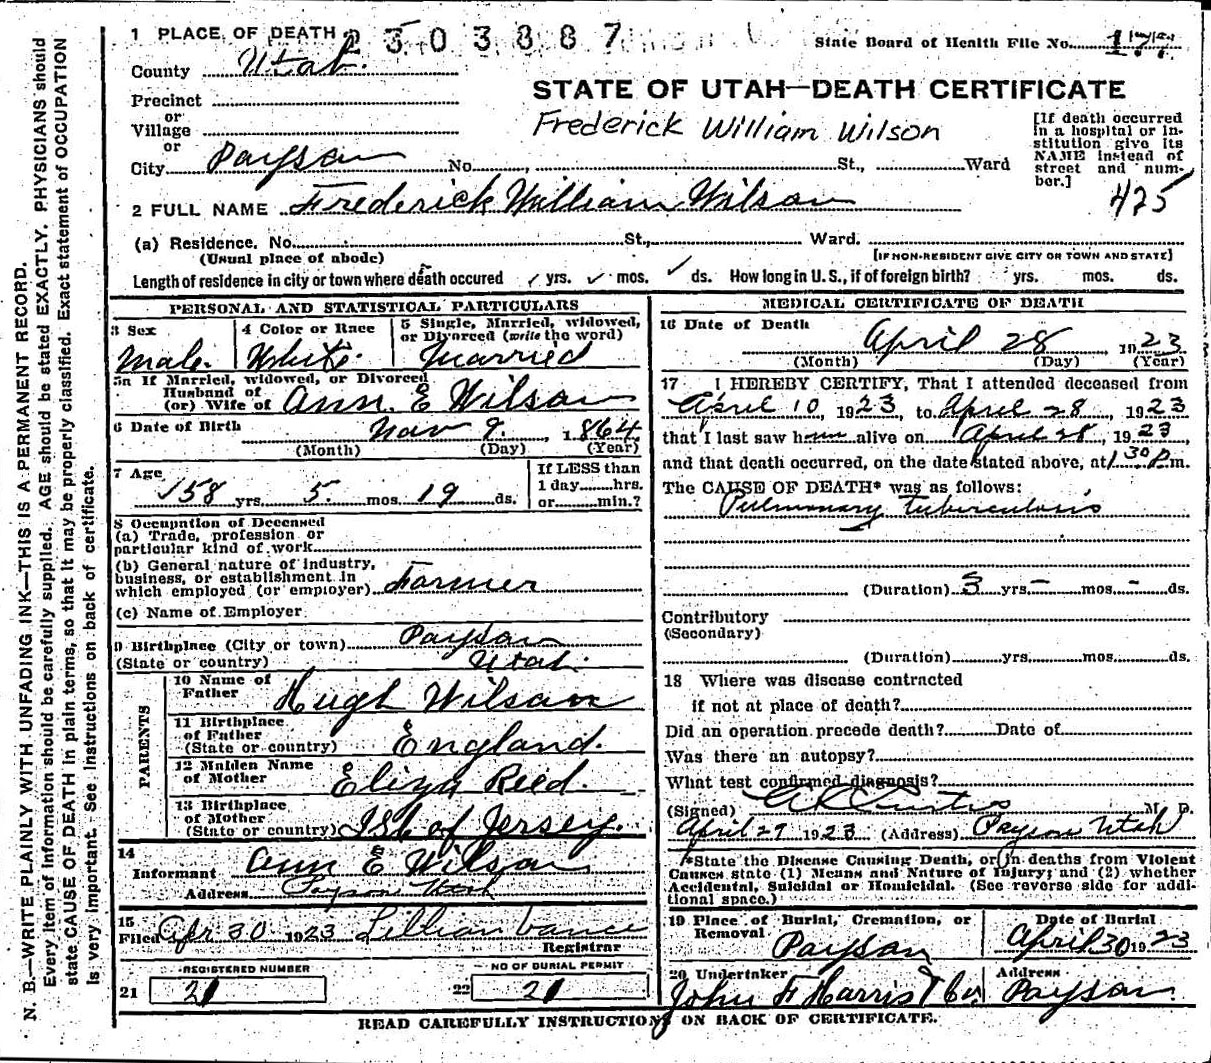 1 PLACE OF DEATH 2303887
State Board of Health File No. 177
County Utah.
STATE OF UTAH—DEATH CERTIFICATE
Precinct
or
Village
or
Frederick William Wilson
[If death occurred in a hospital or institution give its NAME instead of street and number.]
City Payson No. , St., Ward
425
2 FULL NAME Frederick William Wilson
(a) Residence. No. St., Ward.
(Usual place of abode)
[IF NON-RESIDENT GIVE CITY OR TOWN AND STATE]
Length of residence in city or town where death occured yrs. mos. ds. How long in U. S., if of foreign birth? yrs. mos. ds.
PERSONAL AND STATISTICAL PARTICULARS
3 Sex
Male.
4 Color or Race
White.
5 Single, Married, widowed, or Divorced (write the word)
Married
5a If Married, widowed, or Divorced
Husband of
(or) Wife of Ann. E Wilson
6 Date of Birth Nov 9. , 1864
(Month) (Day) (Year)
7 Age
58 yrs. 5. mos. 19 ds.
If LESS than
1 day hrs.
or min.?
8 Occupation of Deceased
(a) Trade, profession or
particular kind of work
(b) General nature of industry,
business, or establishment in
which employed (or employer) Farmer
(c) Name of Employer
9 Birthplace (City or town) Payson
(State or country) Utah.
PARENTS
10 Name of Father Hugh Wilson
11 Birthplace of Father
(State or country) England.
12 Maiden Name of Mother Eliza Reed.
13 Birthplace of Mother
(State or country) Isle of Jersey.
14
Informant Ann E Wilson
Address Payson Utah
15
Filed Apr 30 1923 Lillian Vance
Registrar
REGISTERED NUMBER
21 21
NO OF BURIAL PERMIT
22 21
MEDICAL CERTIFICATE OF DEATH
16 Date of Death April 28 1923
(Month) (Day) (Year)
17 I HEREBY CERTIFY, That I attended deceased from
April 10, 1923, to April 28, 1923
that I last saw h alive on April 28, 1923
and that death occurred, on the date stated above, at 1 30 P.m.
The CAUSE OF DEATH* was as follows:
Pulmonary tuberculosis
(Duration) 3 yrs. – mos. – ds.
Contributory
(Secondary)
(Duration) yrs. mos. ds.
18 Where was disease contracted
if not at place of death?
Did an operation precede death? Date of
Was there an autopsy?
What test confirmed diagnosis?
(Signed) Curtis M. D.
April 29 1923 (Address) Payson Utah
*State the Disease Causing Death, or in deaths from Violent
Causes state (1) Means and Nature of Injury; and (2) whether
Accidental, Suicidal or Homicidal. (See reverse side for additional space.)
19 Place of Burial, Cremation, or Removal
Payson
Date of Burial
April 30 1923
20 Undertaker
John F Harris & Co.
Address
Payson.
READ CAREFULLY INSTRUCTIONS ON BACK OF CERTIFICATE.
N. B.—WRITE PLAINLY WITH UNFADING INK—THIS IS A PERMANENT RECORD.
Every item of information should be carefully supplied. AGE should be stated EXACTLY. PHYSICIANS should
state CAUSE OF DEATH in plain terms, so that it may be properly classified. Exact statement of OCCUPATION
is very important. See instructions on back of certificate.